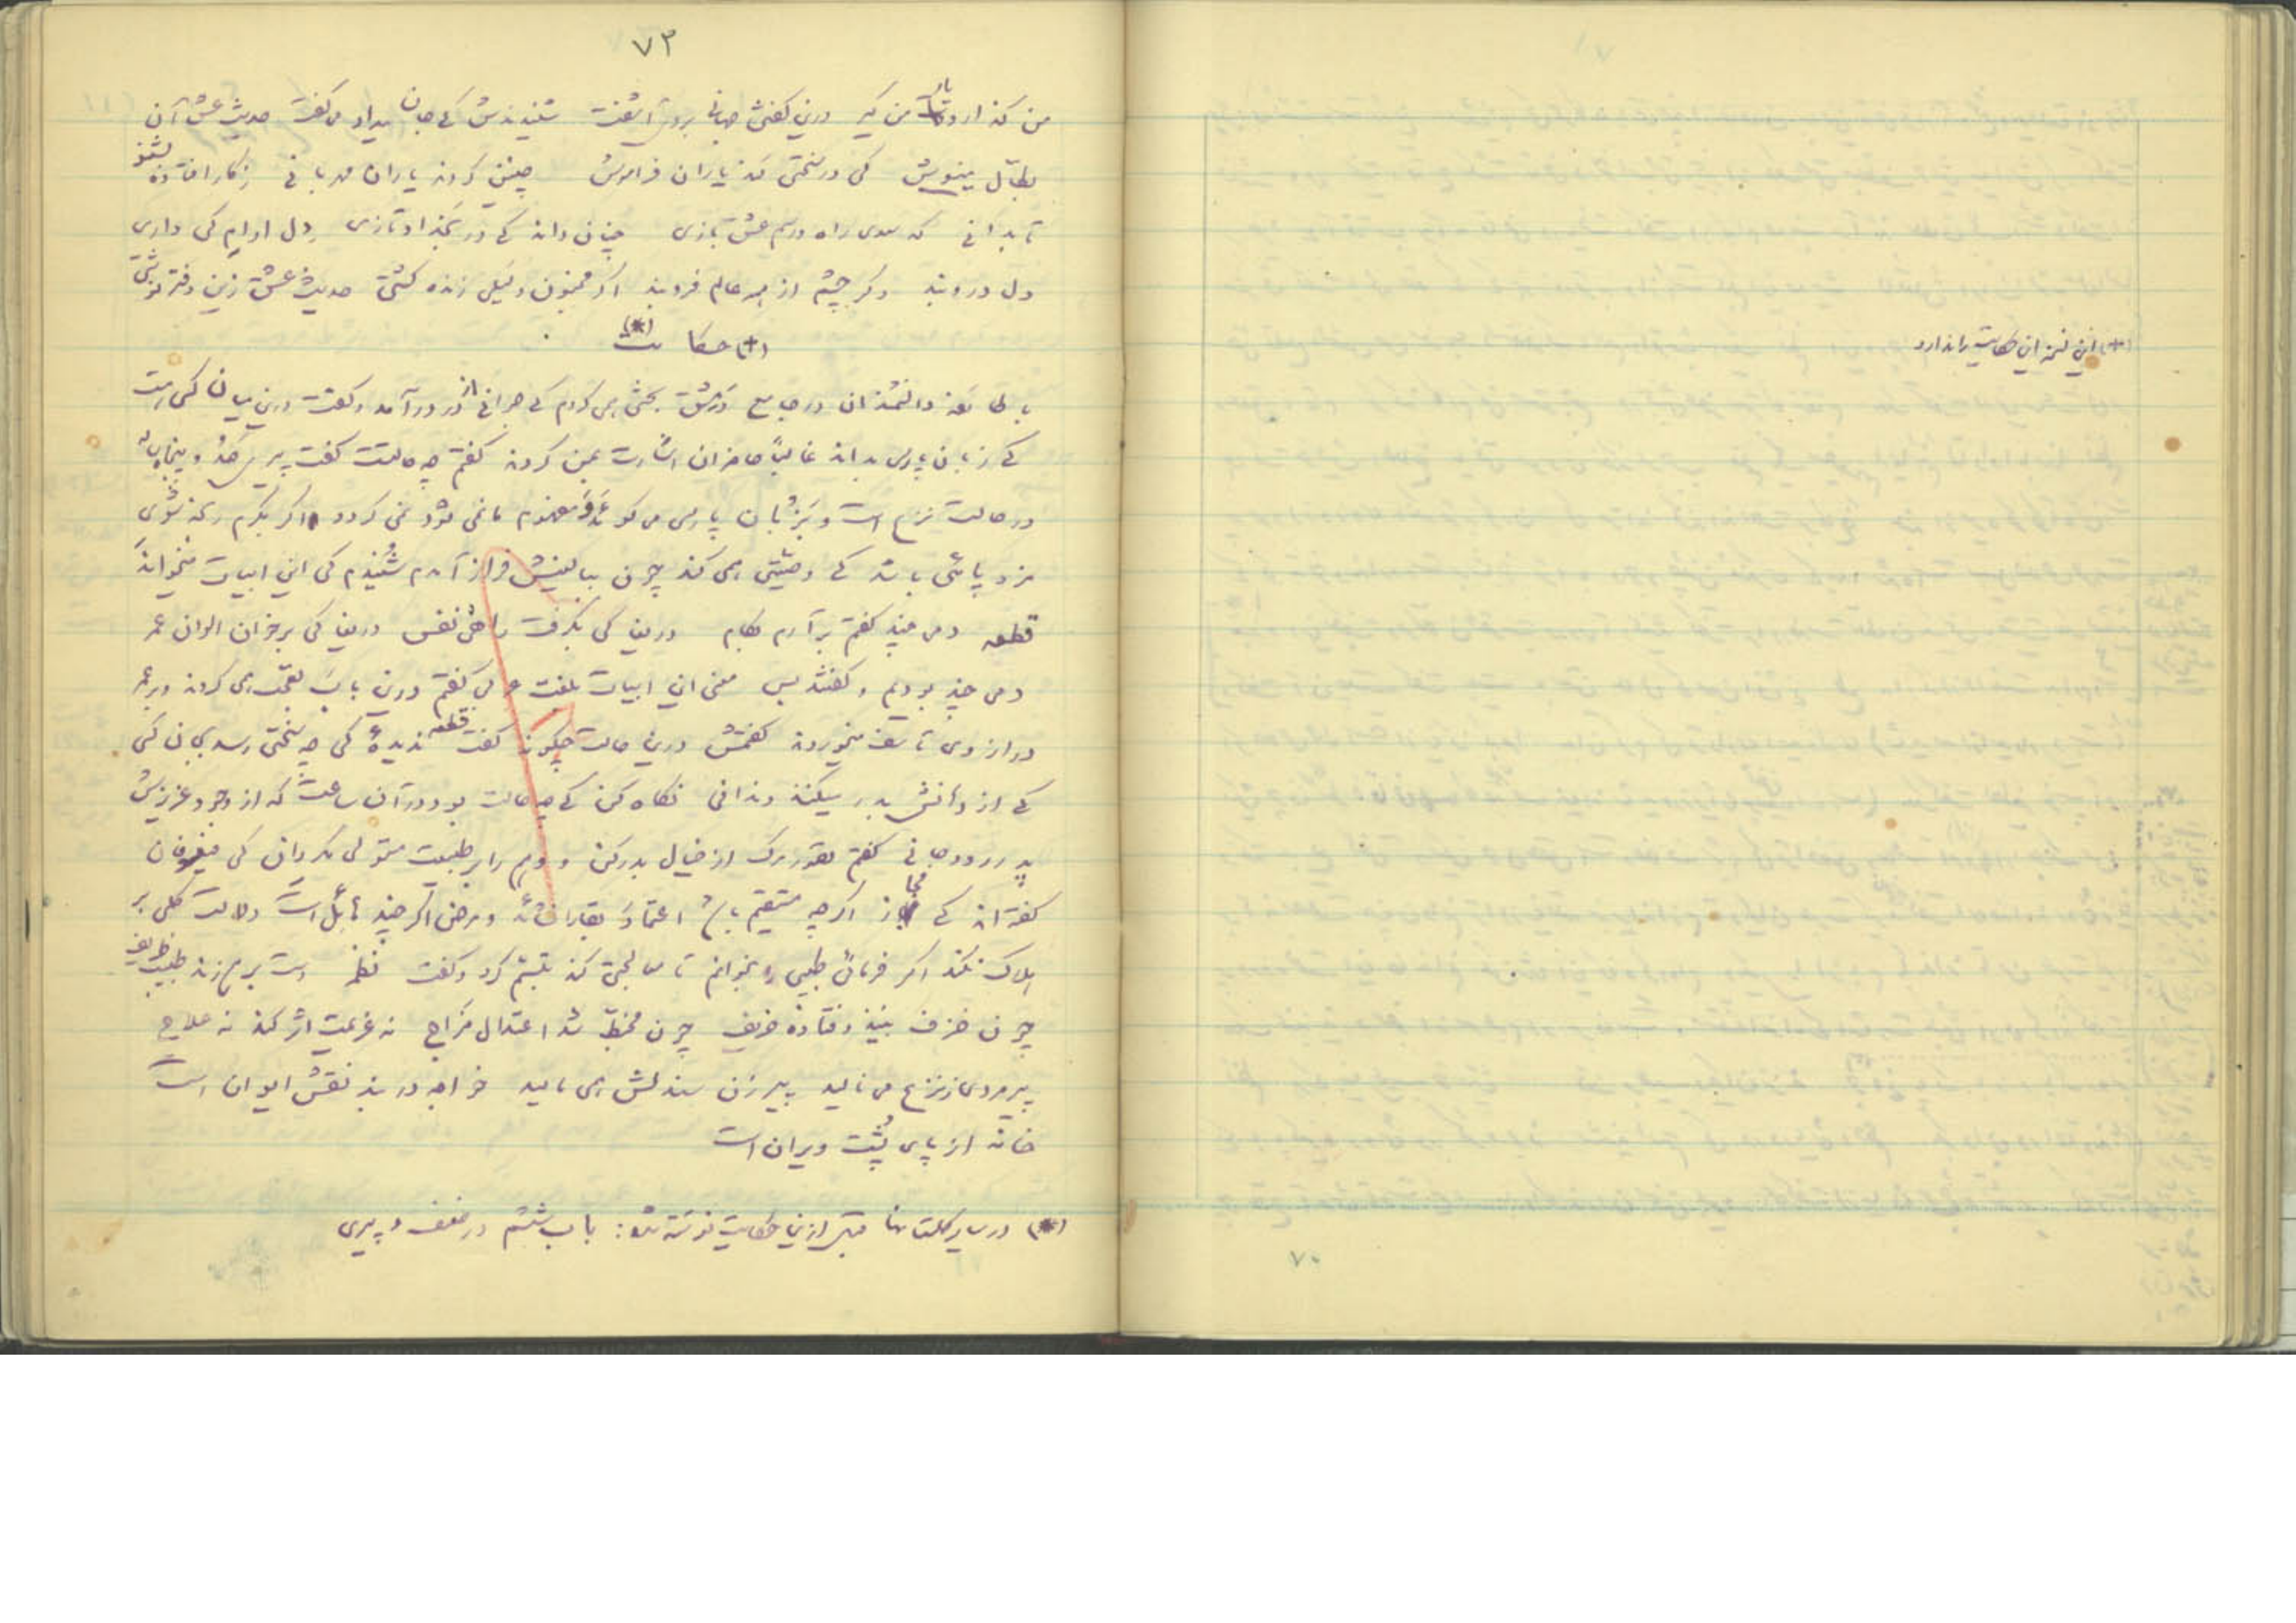 ۷۳
من گذار و دست یار من گیر درین گفتن جهانی بروی آشفت شنیدندش کی جان میداد و میگفت حدیث عشق از آن
بطال منیوش کی در سختی کند یاران فراموش چنین کردند یاران مهربانی ز کار افتاده بشنو
تا بدانی که سعدی راه و رسم عشق بازی چنان داند کی در بغداد تازی دل ارام کی داری
دل درو بند دگر چشم از همه عالم فرو بند اگر مجنون و لیلی زنده گشتی حدیث عشق زین دفتر نوشتی
(+) حکایت (*)
با طائفه دانشمندان در جامع دمشق بحثی همی کردم کی جوانی از در درآمد و گفت درین میان کسی هست
کی زبان پارسی بداند غالباً حاضران اشارت بمن کردند گفتم چه حالتست گفت پیری صد و پنجاه ساله
در حالت نزع است و بزبان پارسی می گوید و مفهوم ما نمی شود نمی گردد اگر بکرم رنجه شوی
مزد یابی باشد کی وصیتی همی کند چون ببالینش فراز آمدم شنیدم کی این ابیات میخواند
قطعه دمی چند گفتم برآرم بکام دریغا کی بگرفت راه نفس دریغا کی بر خوان الوان عمر
دمی چند بودیم و گفتند بس معنی این ابیات بلغت عربی گفتم درین باب تعجب همی کردند و بر عمر
دراز وی تاسف میخوردند گفتمش درین حالت چگونه گفت قطعه ندیدۀ کی چه سختی رسد بجان کسی
کی از دهانش بدر میکنند دندانی نگاه کن کی چه حالت بود در آن ساعت که از وجود عزیزش
بدر رود جانی گفتم تصور مرگ از خیال بدر کن و وهم را بر طبیعت مستولی مگردان کی فیلسوفان
گفته‌اند کی مزاج اگر چه مستقیم باشد اعتماد بقا را نشاید و مرض اگر چند هایل است دلالت کلی بر
هلاک نکند اگر فرمائی طبیبی را بخوانم تا معالجتی کند تبسم کرد و گفت نظم دست بر هم زند طبیب ظریف
چون خرف بیند افتاده حریف چون مخبط شد اعتدال مزاج نه عزیمت اثر کند نه علاج
پیرمردی ز نزع می نالید پیر زن صندلش همی مالید خواجه در بند نقش ایوان است
خانه از پای پست ویران است
(*) در سایر گلستانها قبل از این حکایت نوشته شده: باب ششم در ضعف و پیری
(+) این نسخه این حکایت را ندارد
۷۰